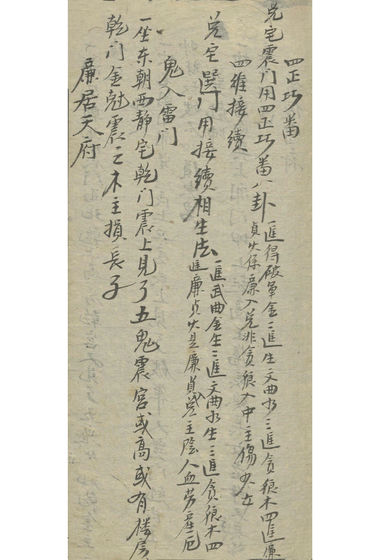 四正巧番
兑宅震门用四正巧番八卦 一進得破軍金二進生文曲水三進貪狼木四進廉
貞火保廉入兑非貪狼入中主傷少女
四維接續
兑宅巽门用接續相生法 一進武曲金生二進文曲水生三進貪狼木四
進廉貞火是廉貞 主陰人血劳產厄
鬼入雷门
一坐东朝西静宅乾门震上見了五鬼震宫或高或有楼房
乾门金尅震之木主損長子
廉居天府